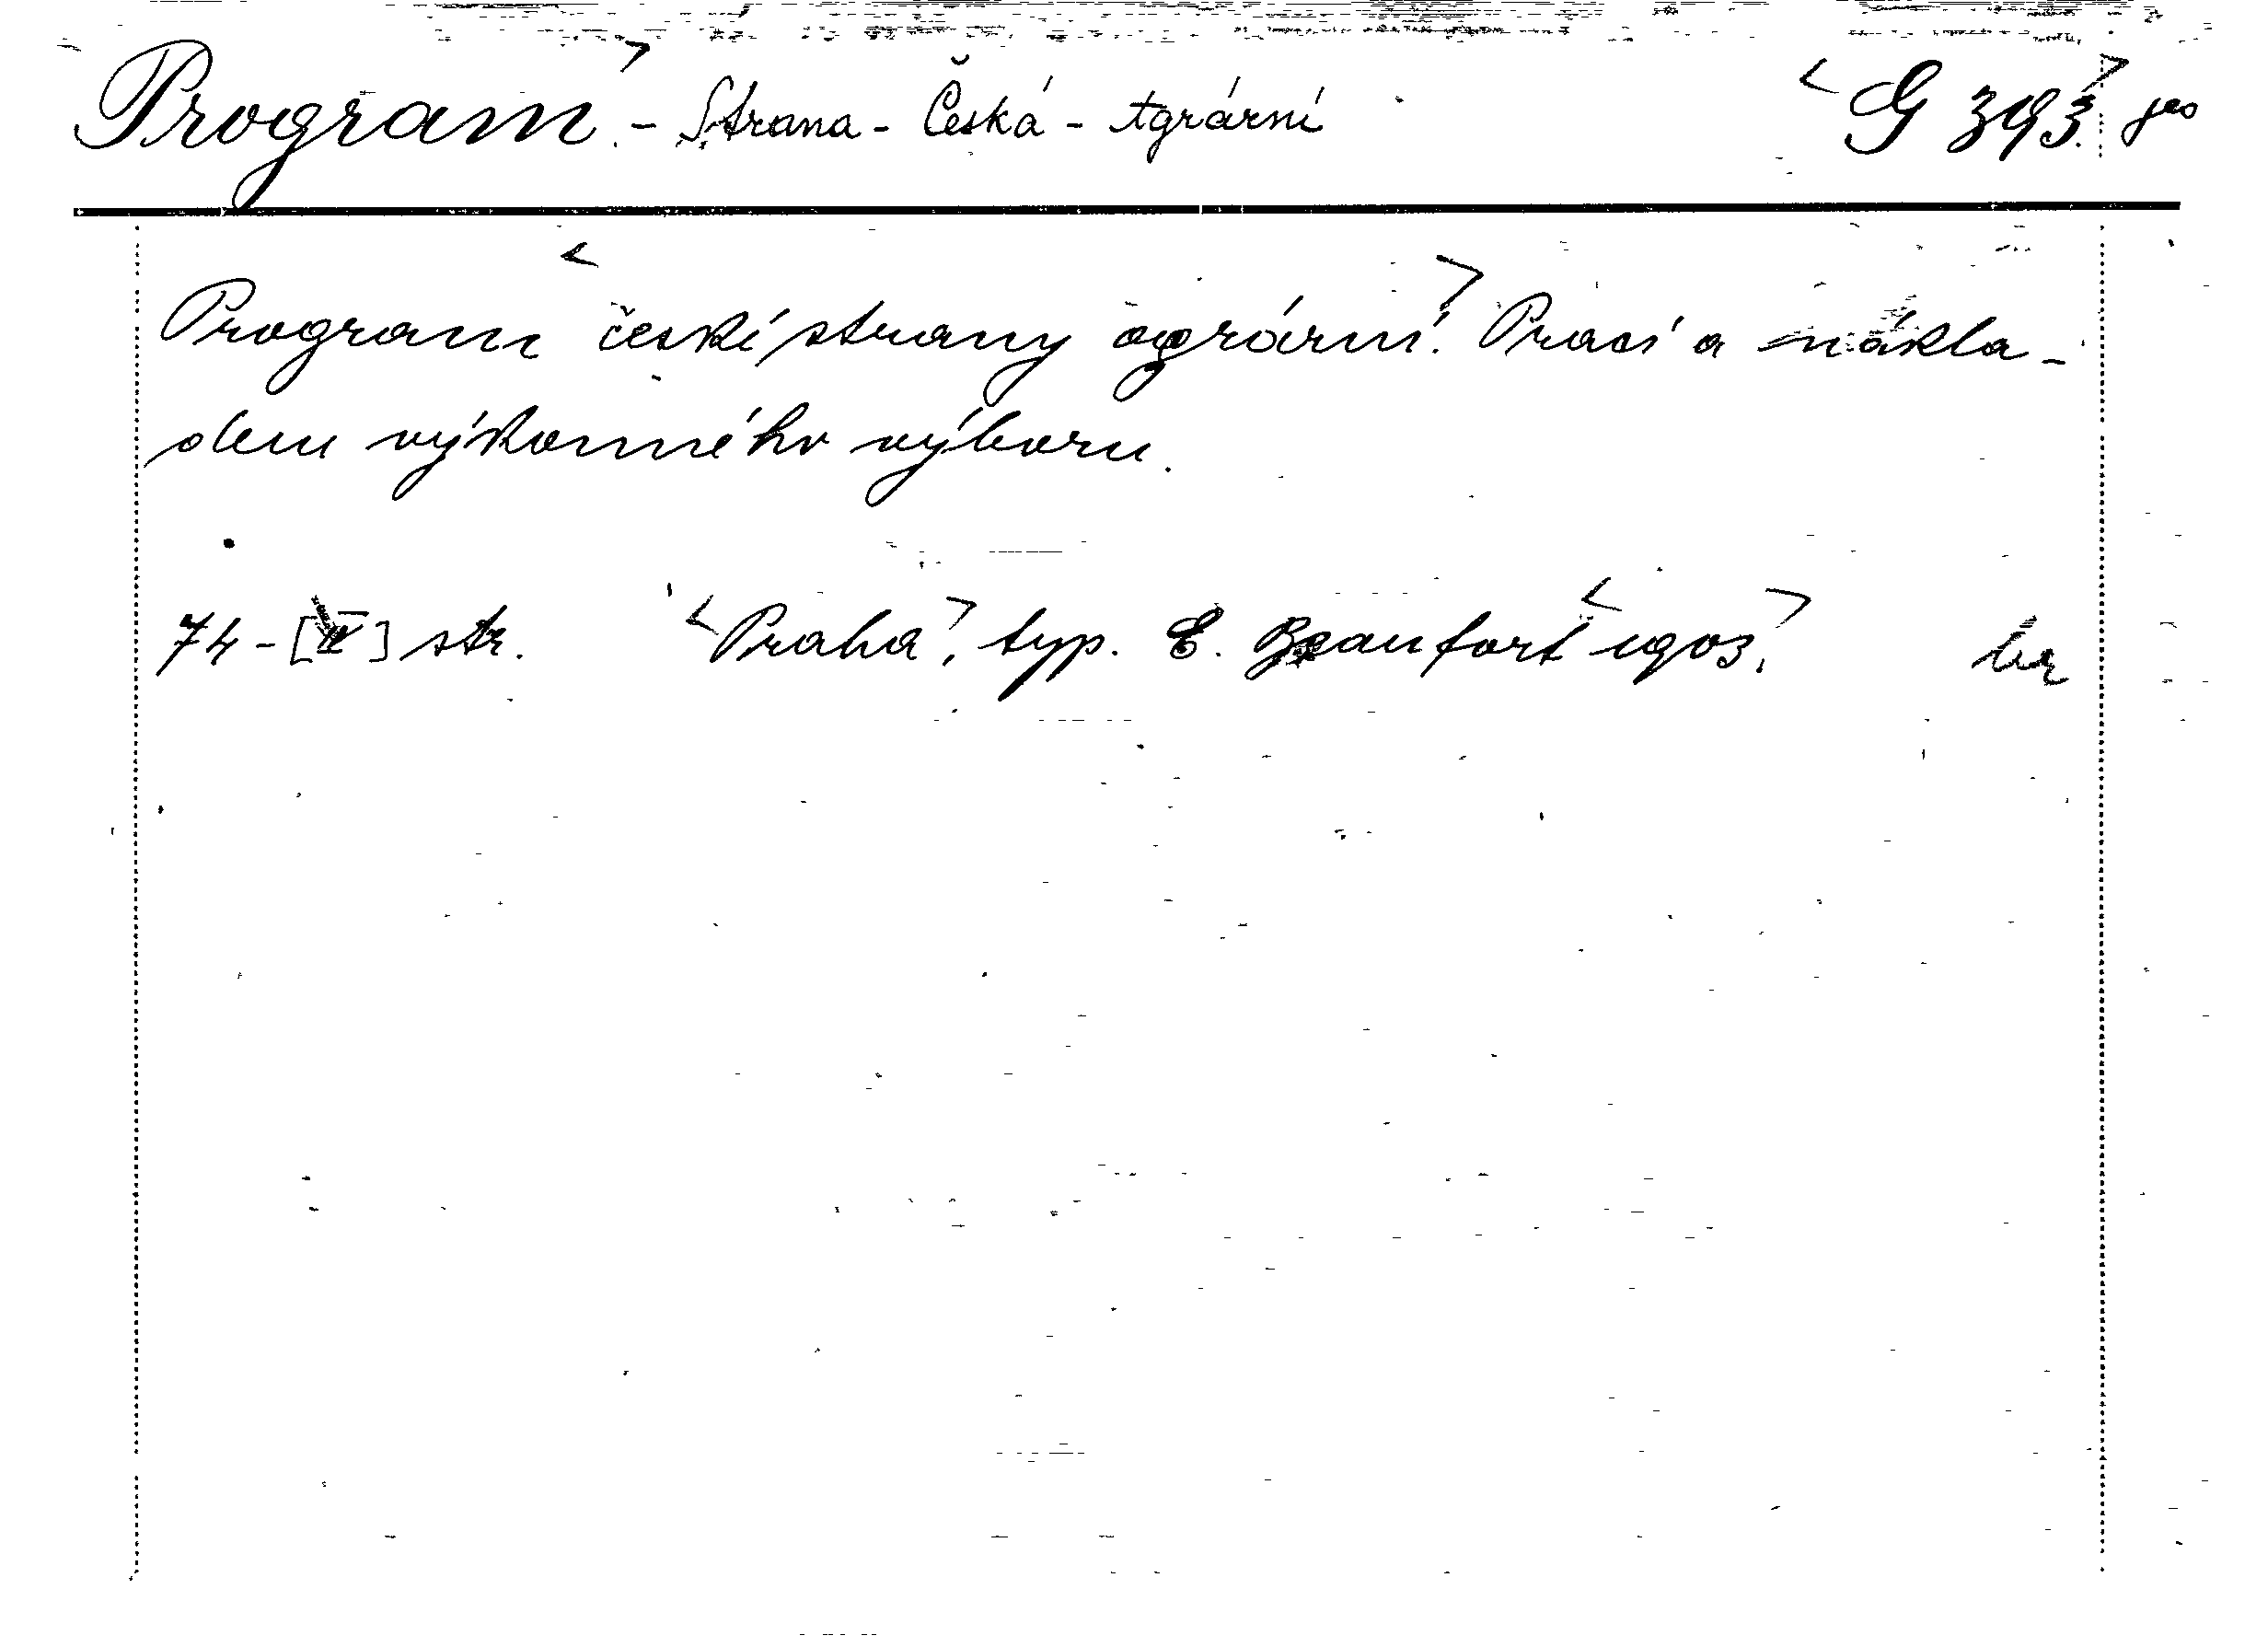 Program. - Strana - Česká - Agrární <G 393.>
Program <české strany agrární.> Prací a nákla-
dem výkonného výboru.
74-[II] str. <Praha>, typ. E. Beaufort <1903.>